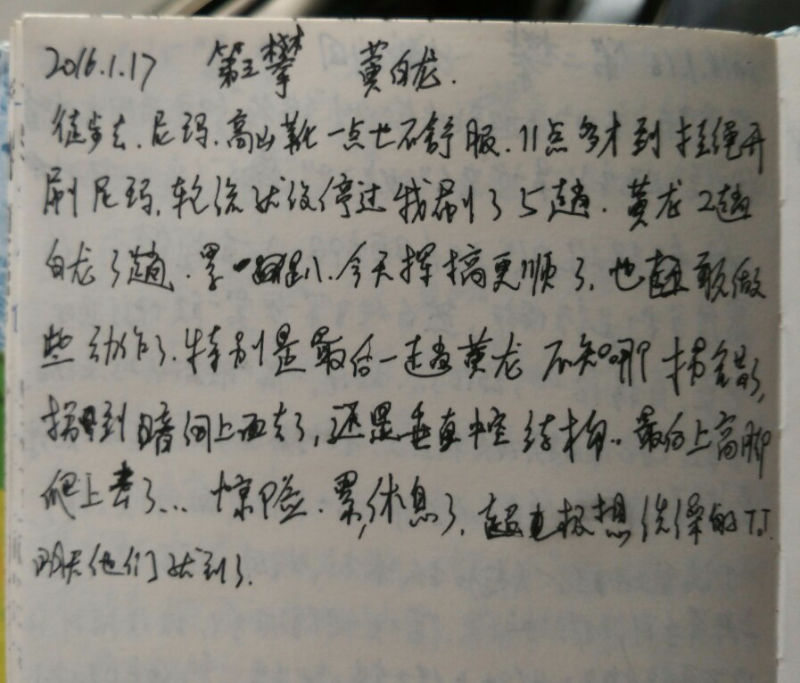 2016.1.17 第三攀 黄白龙.
徒步去.尼玛.高山靴一点也不舒服.11点多才到 挂绳开
刷尼玛,轮流就没停过我刷了5趟.黄龙2趟
白龙3趟.累 趴.今天挥镐更顺了,也敢做
些动作了.特别是最后一趟黄龙 不知哪 搞错了,
搞到暗洞上面去了,还是垂直中空结构..最后上高脚
爬上去了... 惊险.累,休息了,超级想洗澡的TT.
明天他们就到了.